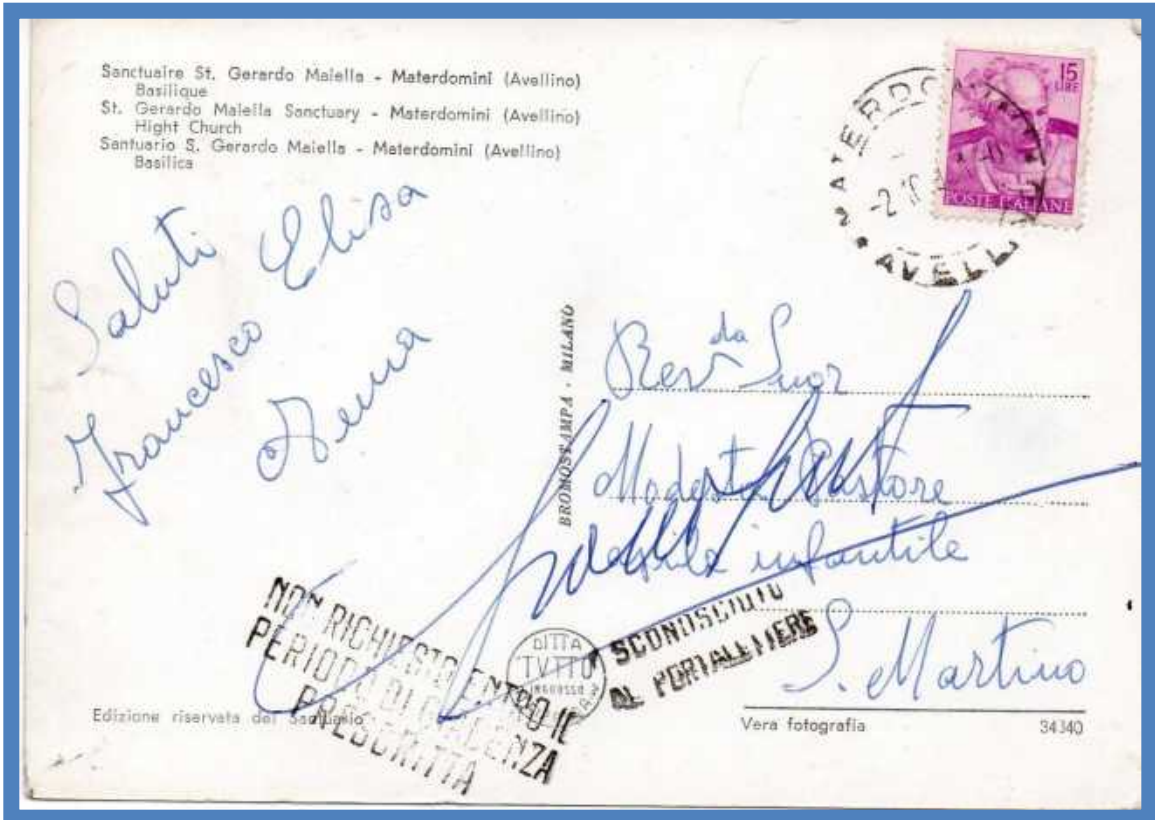 Sanctuaire St. Gerardo Maiella - Materdomini (Avellino)
Basilique
St. Gerardo Maiella Sanctuary - Materdomini (Avellino)
Hight Church
Santuario S. Gerardo Maiella - Materdomini (Avellino)
Basilica
15
LIRE
POSTE ITALIANE
-2
AVELL
Saluti
Francesco Elisa
BROMOSTAMPA - MILANO
Rev.da Suor
Modesta Pastore
Asilo infantile
S. Martino
NON RICHIESTO ENTRO IL
PERIODO DI GIACENZA
PRESCRITTA
DITTA
TVTTO
SCONOSCIUTO
AL PORTALETTERE
Edizione riservata del Santuario
Vera fotografia
34340